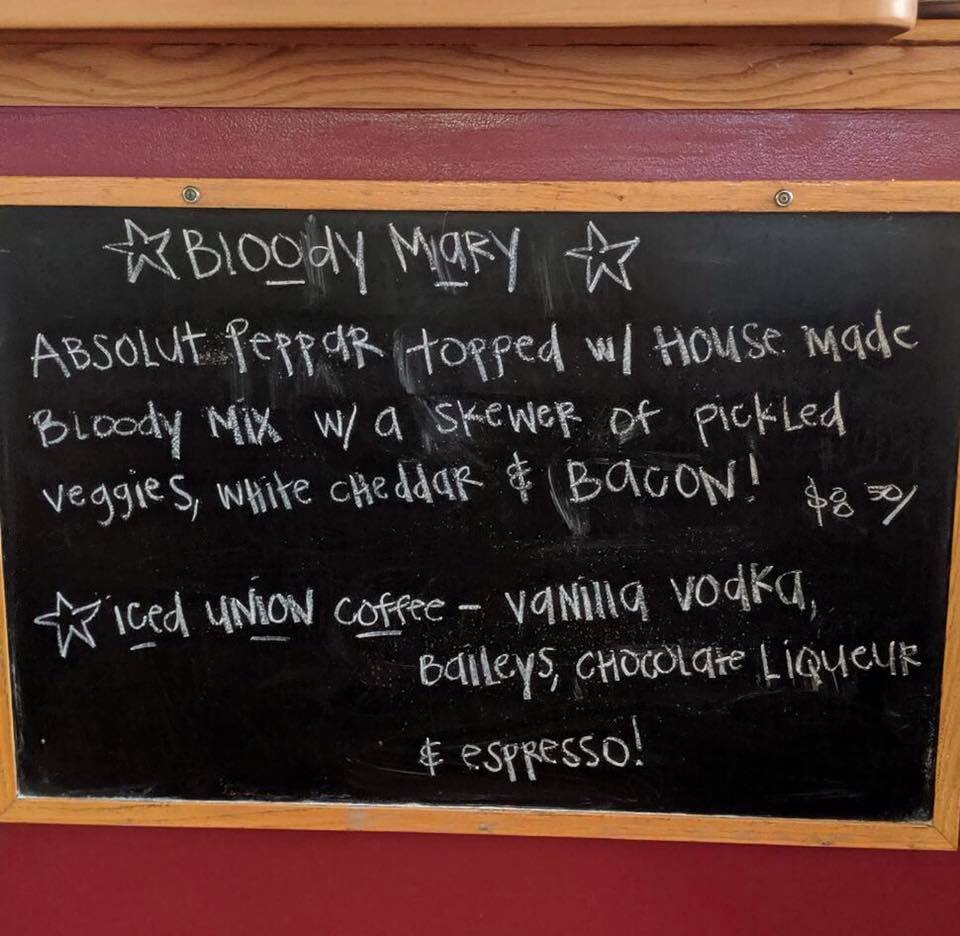 BLOODY MARY
ABSOLUT PEPPAR TOPPED W/ HOUSE MADE
BLOODY MIX W/ A SKEWER OF PICKLED
VEGGIES, WHITE CHEDDAR & BACON! $8 50/
ICED UNION COFFEE - VANILLA VODKA,
BAILEYS, CHOCOLATE LIQUEUR
& ESPRESSO!